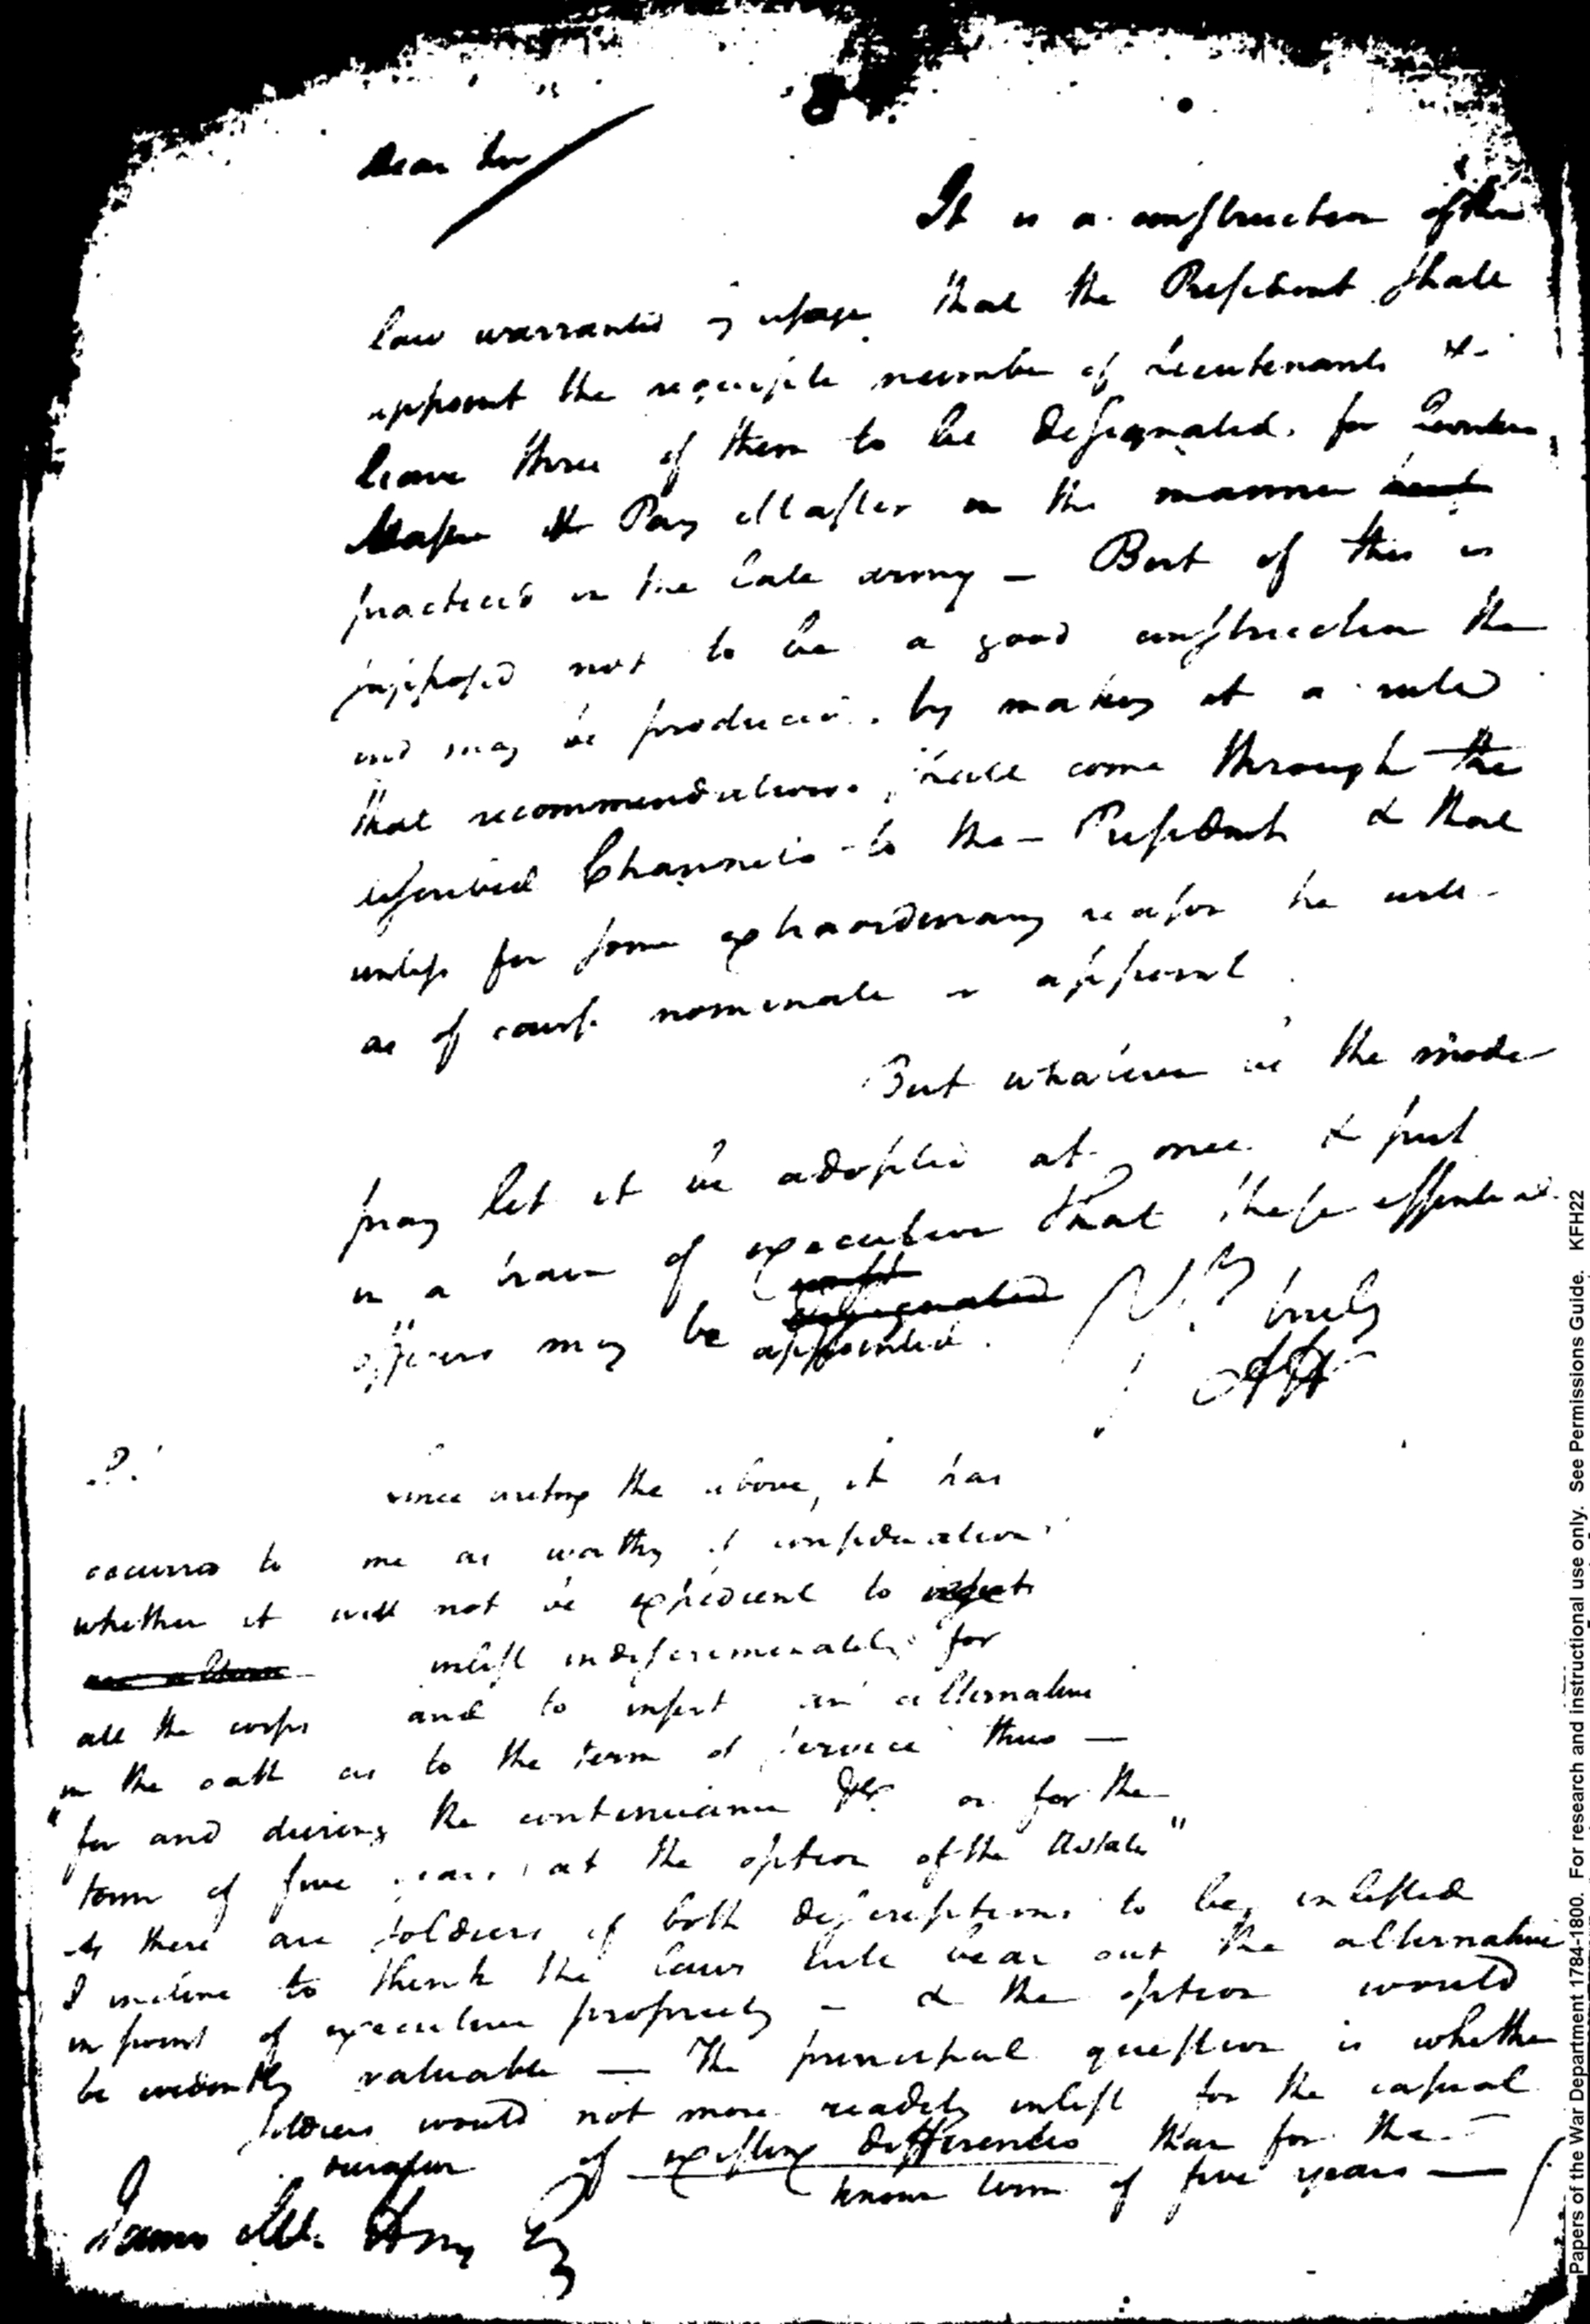 Dear Sir
It is a construction of the
law warranted by usage that the President shall
appoint the requisite number of Lieutenants &
leave three of them to be designated for Quarter
Master & Pay Master in the manner
practiced in the late army — But if this is
supposed not to be a good construction the
end may be produced by making it a rule
that recommendations shall come through the
described Channels to the President & that
unless for some extraordinary reason he will
as of course nominate or appoint.
But whatever be the mode
pray let it be adopted at once & put
in a train of execution that these essential
officers may be designated
appointed. truly
AH
P.
Since writing the above, it has
occurred to me as worthy of consideration
whether it will not be expedient to
inlist indiscriminately for
all the corps and to insert an alternative
in the oath as to the term of service thus —
"for and during the continuance &c or for the
term of five years, at the option of the
As there are soldiers of both descriptions to be inlisted
I incline to think the laws will bear out the alternative
in point of executive propriety — & the option would
be evidently valuable — The principal question is whether
soldiers would not more readily inlist for the casual
duration of existing differences than for the
known term of five years —
James Mc. Henry Esq
Papers of the War Department 1784-1800. For research and instructional use only. See Permissions Guide. KFH22